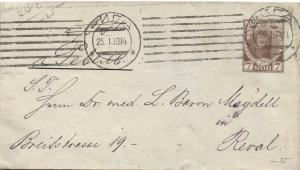 РИГА
25.1.1914
7 КОП 7
S. T.
Herrn Dr med L. Baron Maydell
in
Reval.
Breitstrasse 19.-